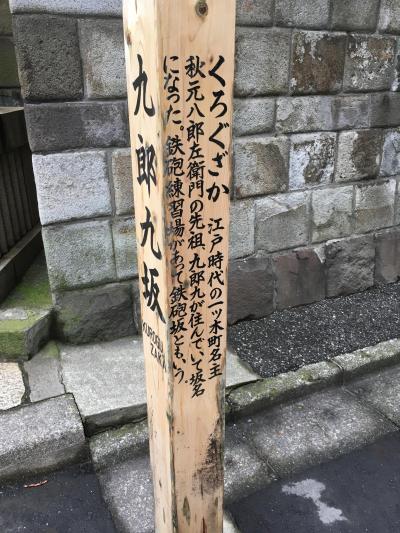 くろぐざか 江戸時代の一ッ木町名主
秋元八郎左衛門の先祖、九郎九が住んでいて坂名
になった。鉄砲練習場があって鉄砲坂とも、いう。
九郎九坂
KUROGU
ZAKA